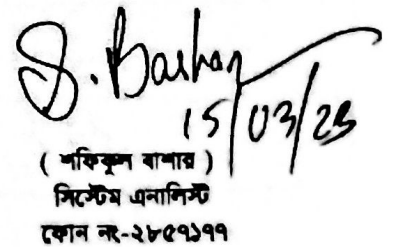 S. Bashar
15/03/23
( শফিকুল বাশার )
সিস্টেম এনালিস্ট
ফোন নং-২৮৫৭১৭৭